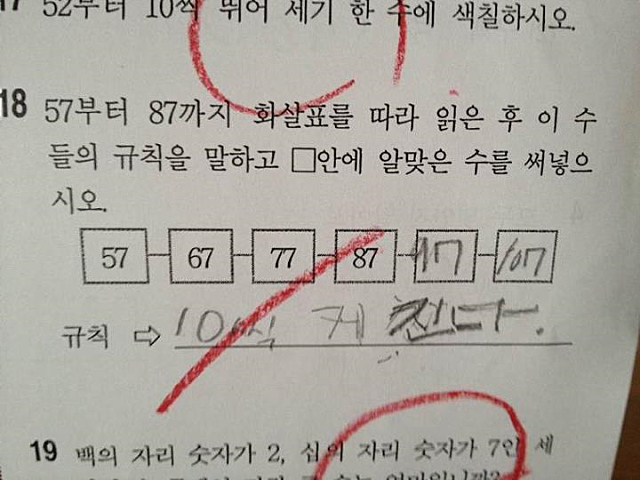 17 52부터 10씩 뛰어 세기 한 수에 색칠하시오.
18 57부터 87까지 화살표를 따라 읽은 후 이 수
들의 규칙을 말하고 □안에 알맞은 수를 써넣으
시오.
57 67 77 87 97 107
규칙 ⇨ 10씩 커진다.
19 백의 자리 숫자가 2, 십의 자리 숫자가 7인 세